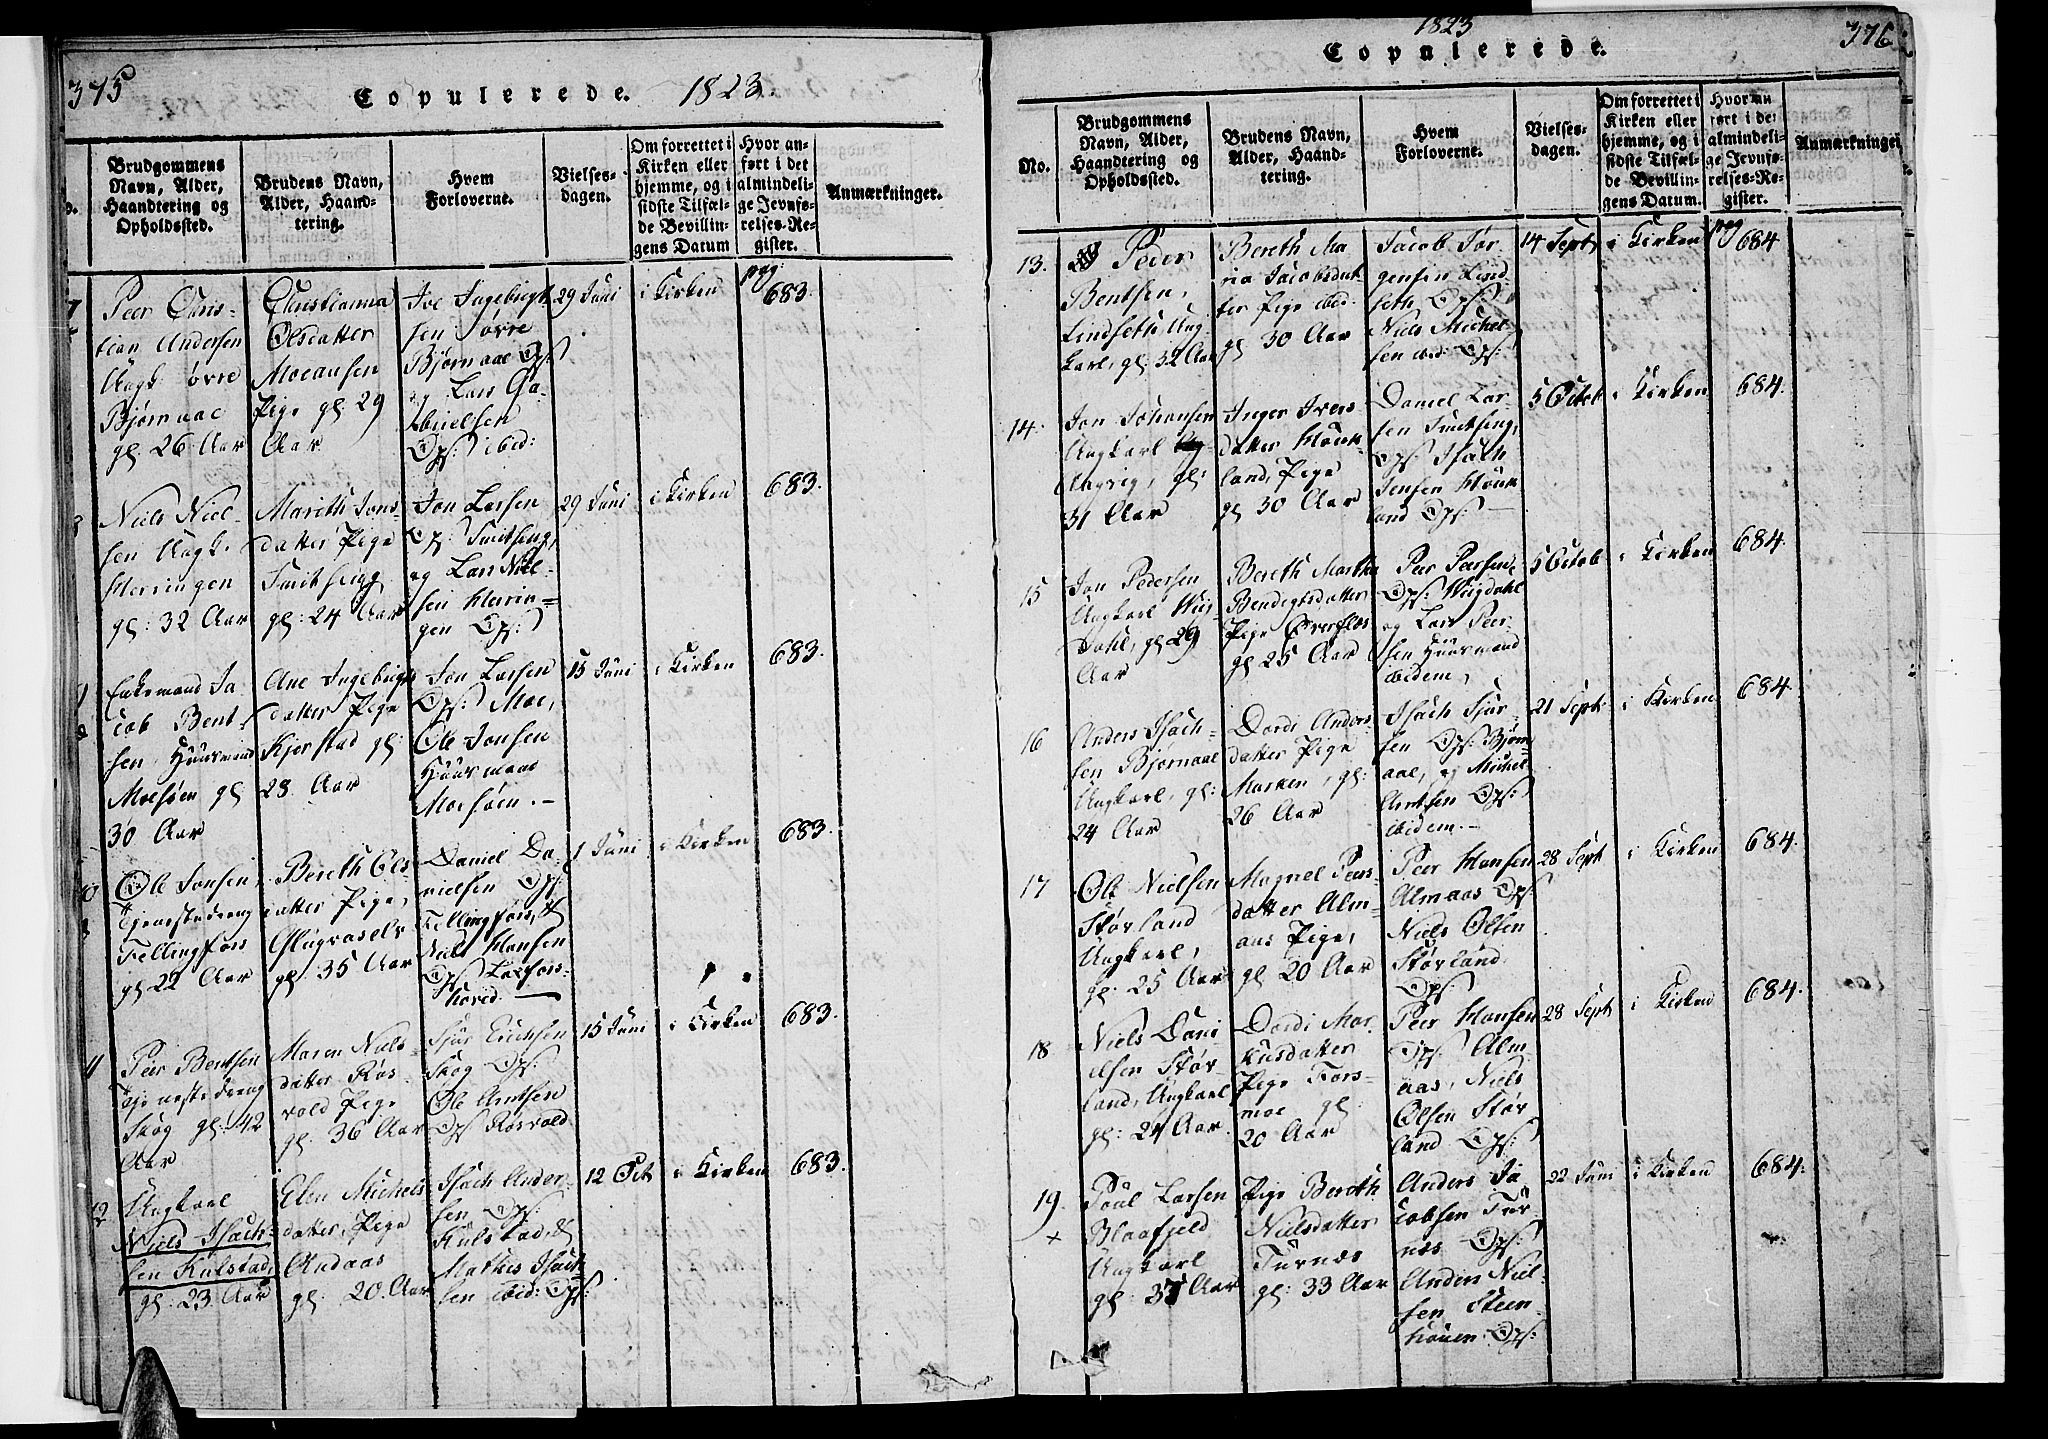 375
Copulerede. 1823.
Brudgommens Navn, Alder, Haandtering og Opholdssted.
Brudens Navn, Alder, Haandtering.
Hvem Forloverne.
Vielses-dagen.
Om forrettet i Kirken eller hjemme, og i sidste Tilfælde Bevillingens Datum
Hvor anført i det almindelige Jevnførelses-Register.
Anmærkninger.
7
Peer Chris-
tian Andersen
Ungk. øvre
Bjørnaae
gl: 26 Aar
Christianna
Olsdatter
Moeausen
Pige gl: 29
Aar
Ive Ingebrigt-
sen øvre
Bjørnaae Ops:
og Lars Ga-
brielsen
Ops: ibid:
29 Juni
i Kirken
pag:
683.
Niels Niel-
sen Ungk.
Herringen
gl: 32 Aar
Marith Jons-
datter Pige
Smithseng
gl: 24 Aar
Jon Larsen
Ops: Smithseng,
og Lars Niel-
sen Herrin-
gen Ops:
29 Juni
i Kirken
683.
9
Enkemand Ja
cob Bent-
sen, Huusmand
Moesøen gl
30 Aar
Ane Ingebrigts
datter Pige
Kjerstad gl:
28 Aar
Jon Larsen
Ops: Moe,
Ole Jonsen
Huusmand
Moesøen. -
15 Juni
i Kirken
683.
Ole Jonsen,
Tjenestedreng
Fellingfors
gl 22 Aar
Bereth Ols-
datter Pige,
gl: 35 Aar
Daniel Da-
nielsen Ops:
Fellingfors, &
Niels Hansen
Ops Laxfors-
hoved. -
1 Juni
i Kirken
683.
11
Peer Bentsen
Tjenestedreng
Skog gl: 42
Aar
Maren Niels
datter Ros-
vold Pige
gl: 36 Aar
Sjur Erichsen
Skog Ops:
Ole Arntsen
Ops Rosvold
15 Juni
i Kirken
683.
12
Ungkarl
Niels Isach-
sen Kulstad,
gl: 23 Aar
Elen Michels
datter, Pige
Andaas
gl: 20. Aar
Isach Ander-
sen Ops:
Kulstad, &
Mathis Isach
sen ibid: Ops:
12 Oct
i Kirken
683.
1823
Copulerede.
376
No.
Brudgommens Navn, Alder, Haandtering og Opholdssted.
Brudens Navn, Alder, Haandtering.
Hvem Forloverne.
Vielses-dagen.
Om forrettet i Kirken eller hjemme, og i sidste Tilfælde Bevillingens Datum.
Hvor anført i det almindelige Jevnførelses-Register.
Anmærkninger
13.
Peder
Bentsen,
Lindseth Ung
karl, gl: 32 Aar
Bereth Ma
ria Jacobsdat
ter Pige ibid:
gl 30 Aar
Jacob Jør
gensen Lind
seth, Ops:
Niels Michel-
sen ibid: Ops:
14 Sept
i Kirken
pag
684
14.
Jon Johansen
Ungkarl
gl:
31 Aar
Inger Ivers
datter
land, Pige
gl 30 Aar
Daniel Lar-
sen Smithseng,
Ops Isach
Jensen
land Ops:
5 Octob
i Kirken
684.
15
Jon Pedersen
Ungkarl Wiig
dahl, gl 29
Aar
Bereth Martha
Bendigtsdatter
Pige
gl 25 Aar
Peer Peersen,
Ops: Wiigdahl
og Lars Peer
sen Huusmand
ibidem,
5 Octob
i Kirken
684.
16
Anders Isach-
sen Bjørnaae
Ungkarl, gl:
24 Aar
Dordi Anders
datter Pige
Marken, gl:
26 Aar
Isach Sjur-
sen Ops: Bjørn
aae, og Michel
Arntsen Ops:
ibidem. -
21 Sept:
i Kirken
684.
17
Ole Nielsen
Størland
Ungkarl,
gl: 25 Aar
Magnel Peers-
datter Alm-
aas Pige,
gl 20 Aar
Peer Hansen
Almaas Ops:
Niels Olsen
Størland
Ops:
28 Sept
i Kirken
684.
18
Niels Dani
elsen Stør-
land, Ungkarl
gl: 24 Aar.
Dordi Mar
kusdatter
Pige Fors-
moe gl
20 Aar
Peer Hansen
Ops: Alm
aas, Niels
Olsen Stør
land Ops:
28 Sept
i Kirken
684.
19.
+
Poul Larsen
Blaafjeld
Ungkarl
gl: 37 Aar
Pige Bereth
Nielsdatter
Turnes
gl: 33 Aar
Anders Ja
cobsen Tur
nes Ops:
Anders Niel-
sen Steen-
houen Ops:
22 Juni
i Kirken
684.